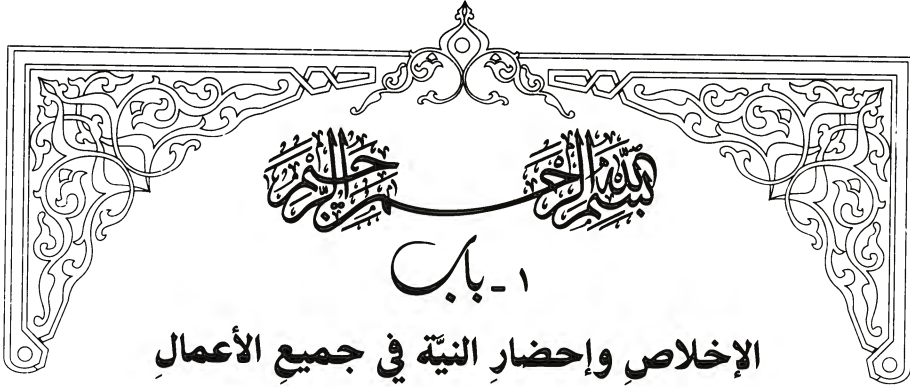 بسم الله الرحمن الرحيم
١ - باب
الإخلاصِ وإحضارِ النيَّة في جميعِ الأعمالِ